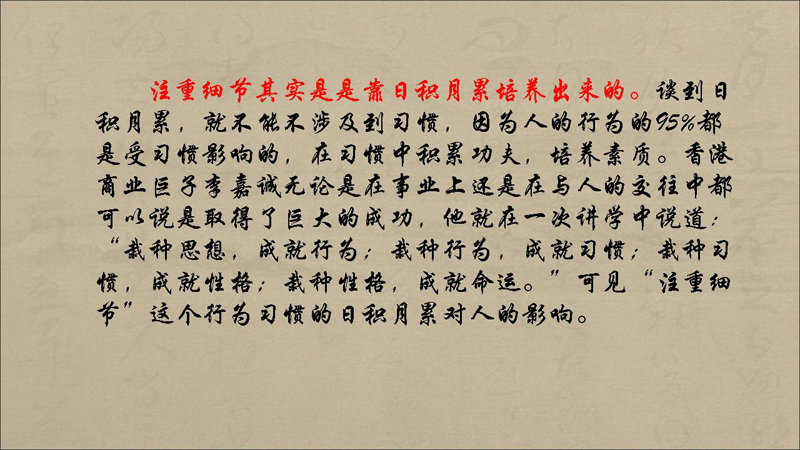 注重细节其实是是靠日积月累培养出来的。谈到日
积月累，就不能不涉及到习惯，因为人的行为的95%都
是受习惯影响的，在习惯中积累功夫，培养素质。香港
商业巨子李嘉诚无论是在事业上还是在与人的交往中都
可以说是取得了巨大的成功，他就在一次讲学中说道：
“栽种思想，成就行为；栽种行为，成就习惯；栽种习
惯，成就性格；栽种性格，成就命运。”可见“注重细
节”这个行为习惯的日积月累对人的影响。